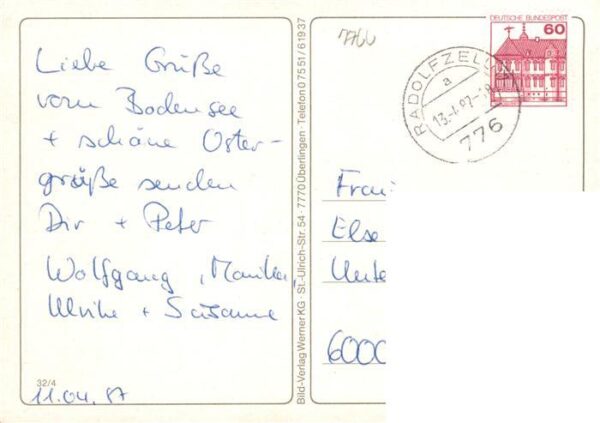 Liebe Grüße
vom Bodensee
+ schöne Oster-
grüße senden
Dir + Peter
Wolfgang, Monika,
Ulrike + Susanne
32/4
11.04.87
Bild-Verlag Werner KG · St.-Ulrich-Str. 54 · 7770 Überlingen · Telefon 0 75 51 / 6 19 37
7760
DEUTSCHE BUNDESPOST
60
RADOLFZELL
a
13.-4.87-18
776
Frau
Else
Unte
6000